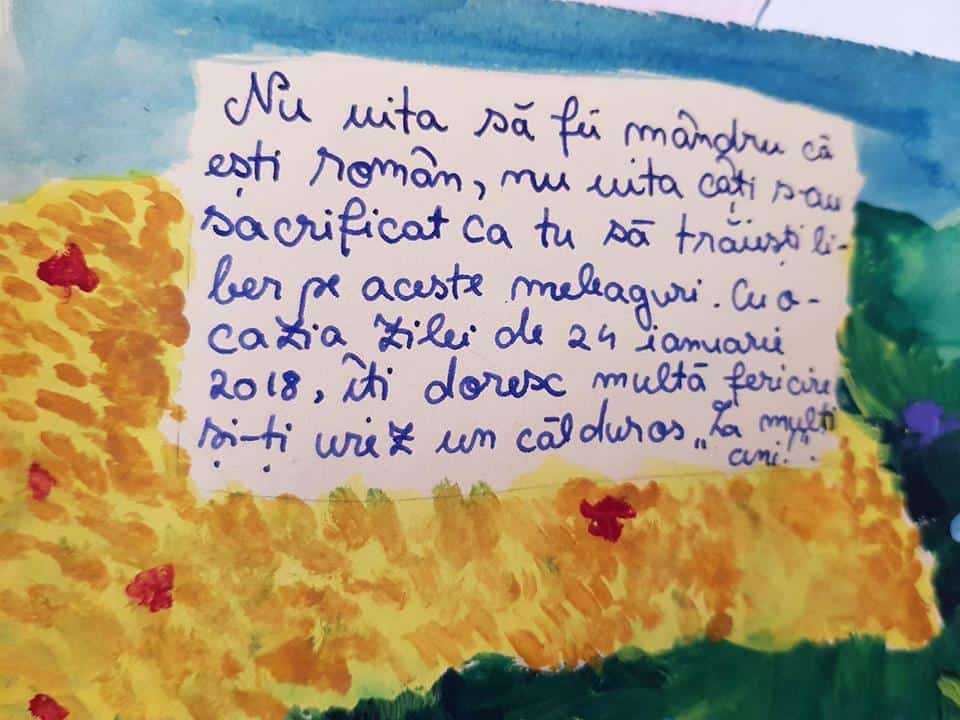 Nu uita să fii mândru că
ești român, nu uita câți s-au
sacrificat ca tu să trăiești li-
ber pe aceste meleaguri. Cu o-
cazia zilei de 24 ianuarie
2018, îți doresc multă fericire
și-ți urez un călduros „La mulți
ani!".